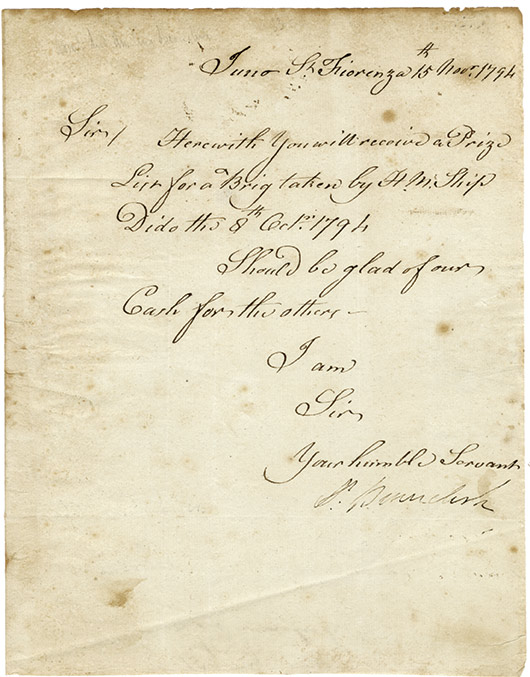 Juno St. Fiorenza 15th Novr. 1794
Sir/ Herewith You will receive a Prize
List for a Brig taken by H. M. Ship
Dido the 8th Octr. 1794
Should be glad of our
Cash for the others –
I am
Sir
Your humble Servant